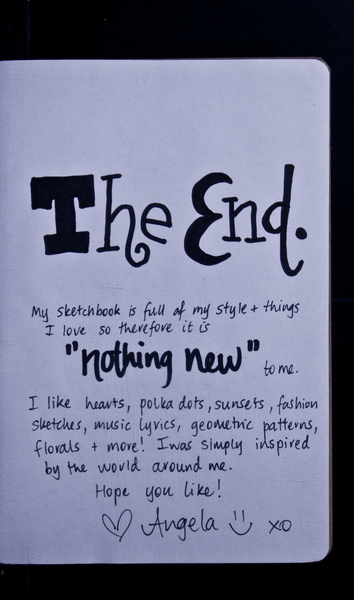 The End.
My sketchbook is full of my style + things
I love so therefore it is
"nothing new" to me.
I like hearts, polka dots, sunsets, fashion
sketches, music lyrics, geometric patterns,
florals + more! I was simply inspired
by the world around me.
Hope you like!
♡ Angela :) xo